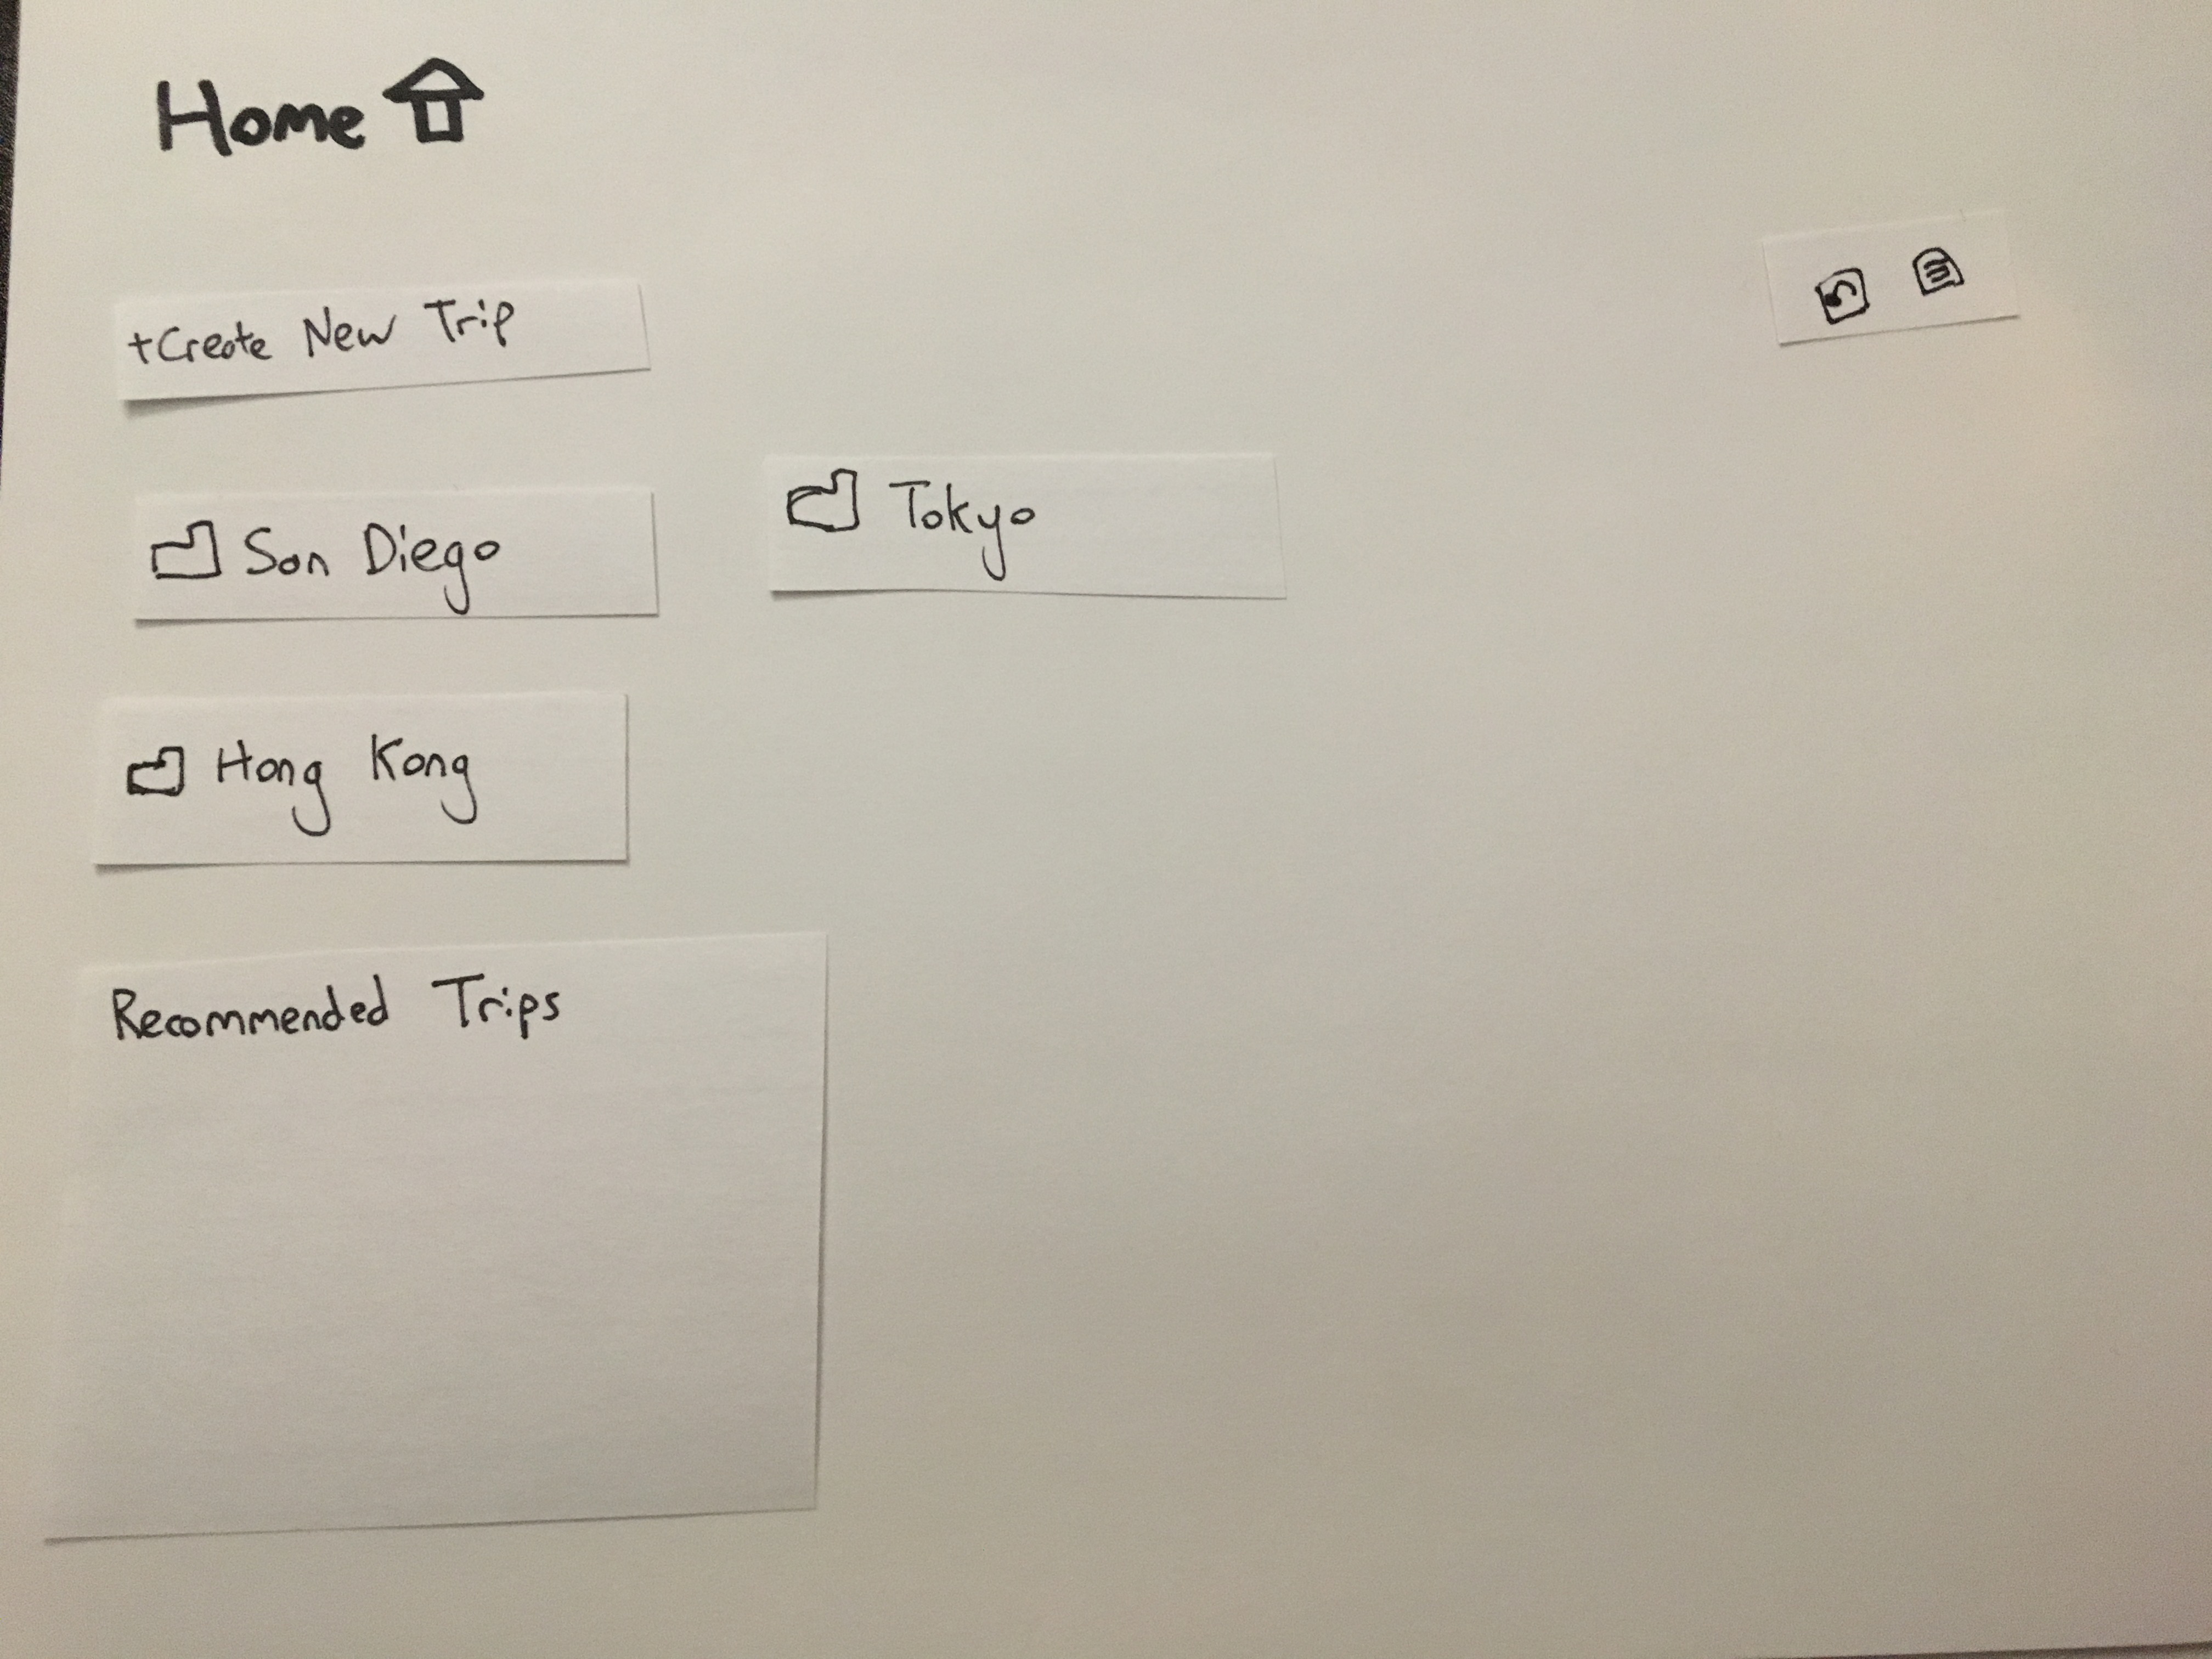 Home
+Create New Trip
San Diego
Tokyo
Hong Kong
Recommended Trips